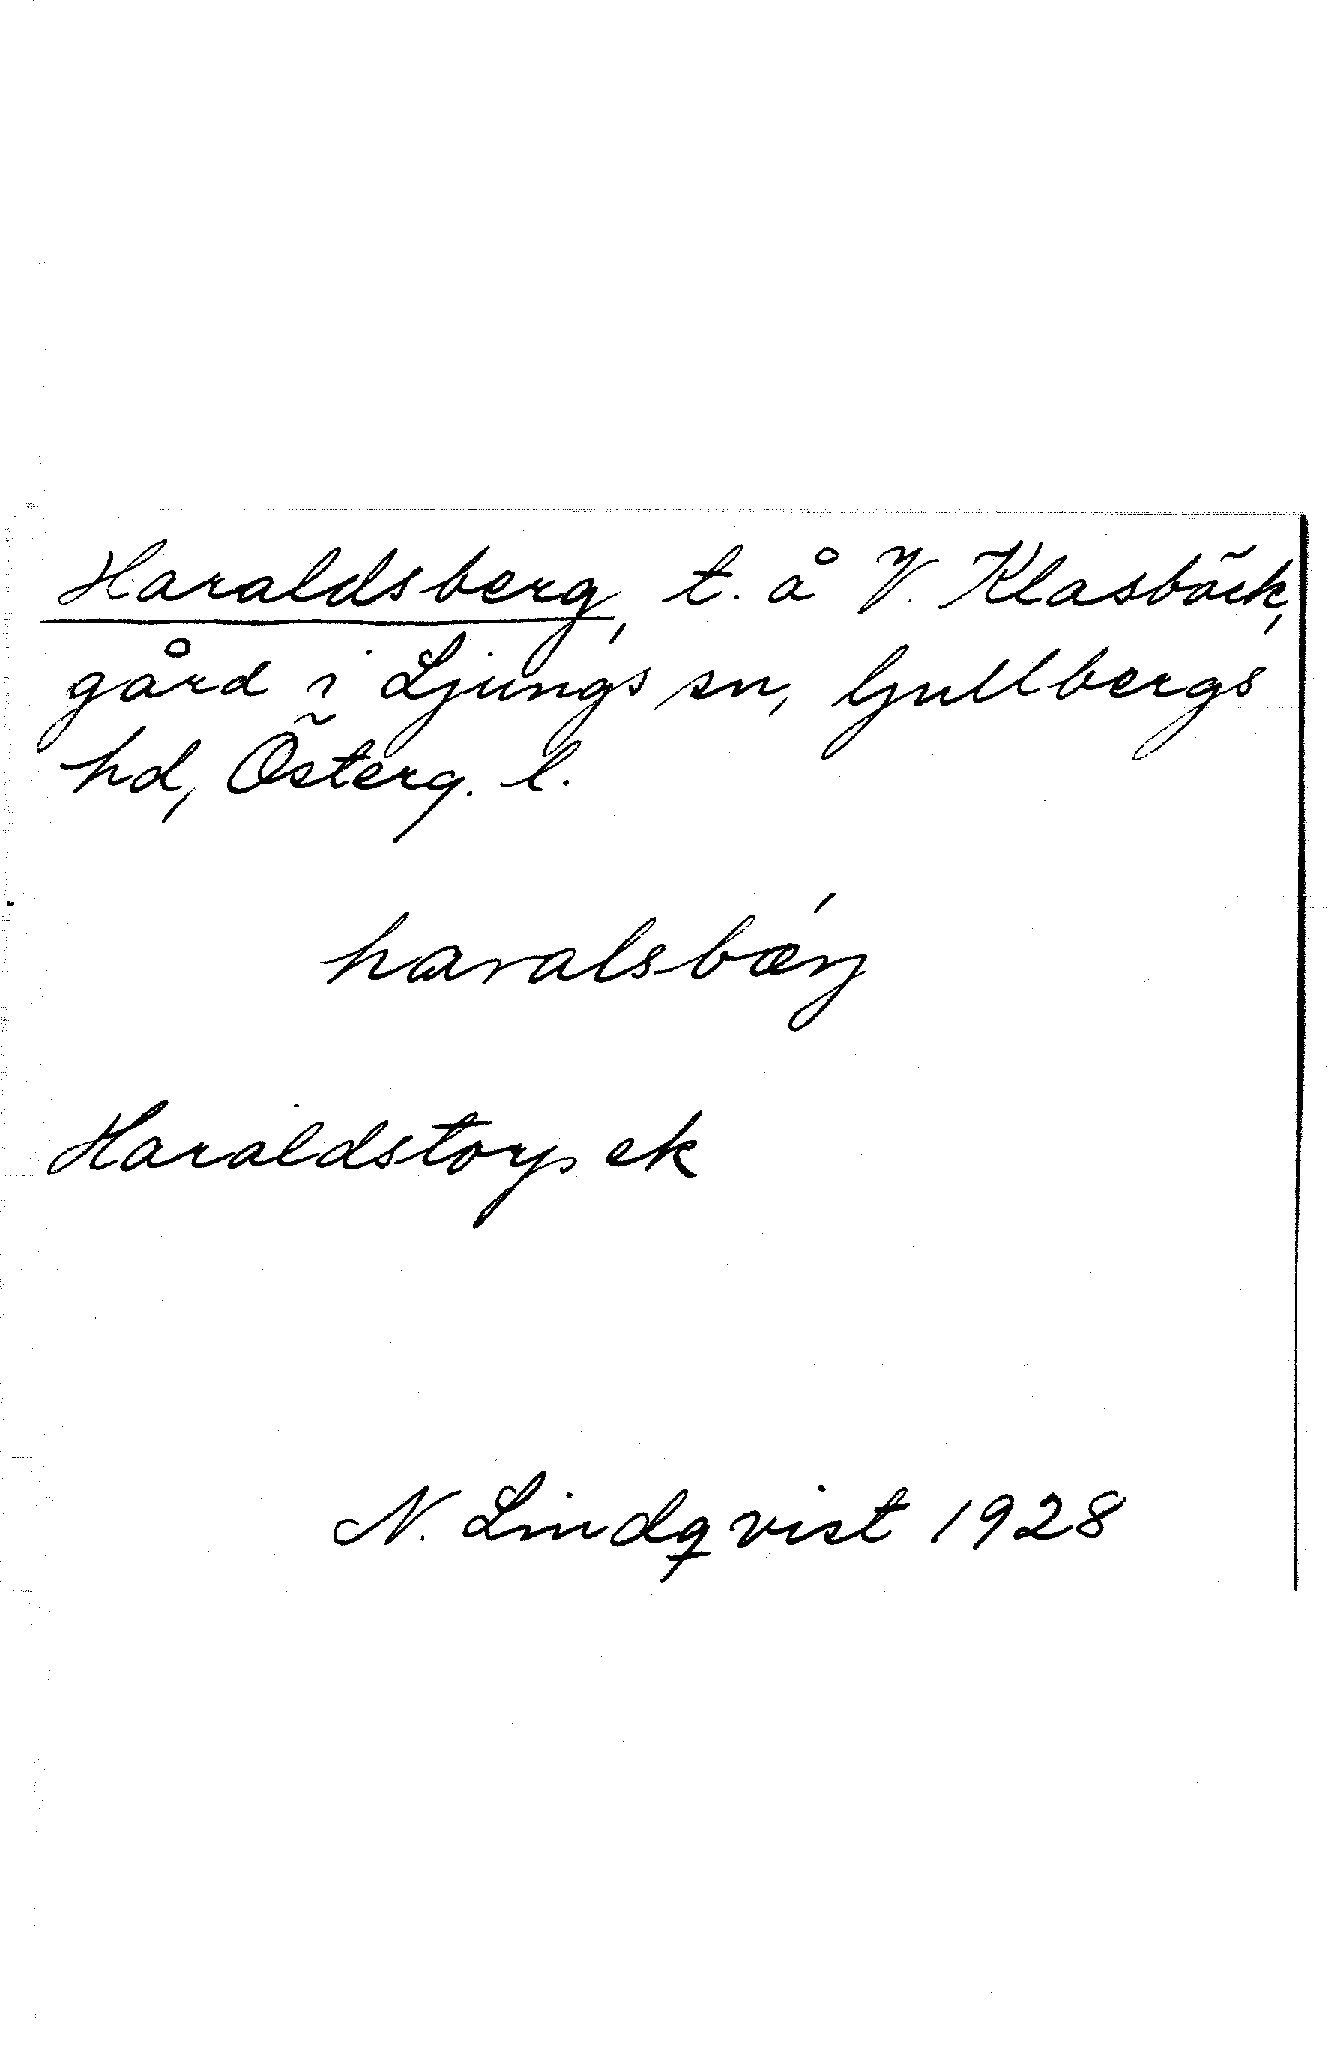 Haraldsberg, t. å V. Klasbäck,
gård i Ljungs sn, Gullbergs
hd, Österg. l.
haralsbǽrj
Haraldstorp ek
N. Lindqvist 1928